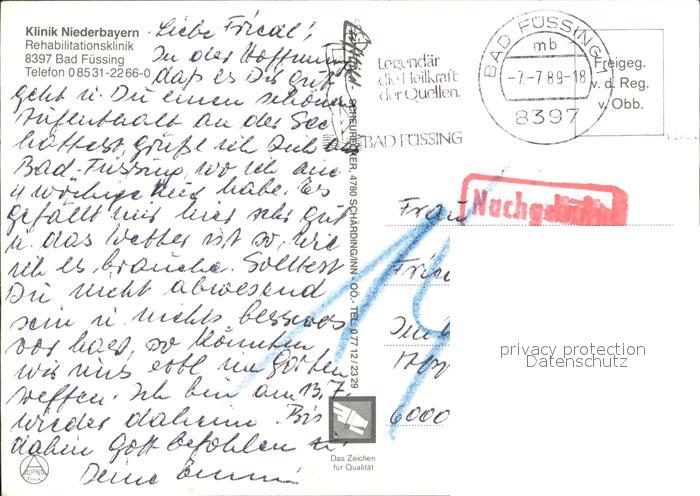 Klinik Niederbayern
Rehabilitationsklinik
8397 Bad Füssing
Telefon 08531-2266-0
Liebe Friedl!
In der Hoffnung
daß es Dir gut
geht u. Du einen schönen
Aufenthalt an der See
hattest grüße ich Dich aus
Bad-Füssing, wo ich eine
4 wöchige Kur habe. Es
gefällt mir hier sehr gut
u. das Wetter ist so, wie
ich es brauche. Solltest
Du nicht abwesend
sein u. nichts besseres
vor hast, so könnten
wir uns evtl im Garten
treffen. Ich bin am 13.7.
wieder daheim. Bis
dahin Gott befohlen
Deine
ALPINA
SCHEURECKER, 4780 SCHÄRDING/INN · OÖ. - TEL. 0 77 12 / 23 29
Legendär
die Heilkraft
der Quellen.
BAD FÜSSING
BAD FÜSSING 1
mb
-7.-7 89-18
8397
Freigeg.
v. d. Reg.
v. Obb.
Frau
6000
14
Das Zeichen
für Qualität
privacy protection
Datenschutz